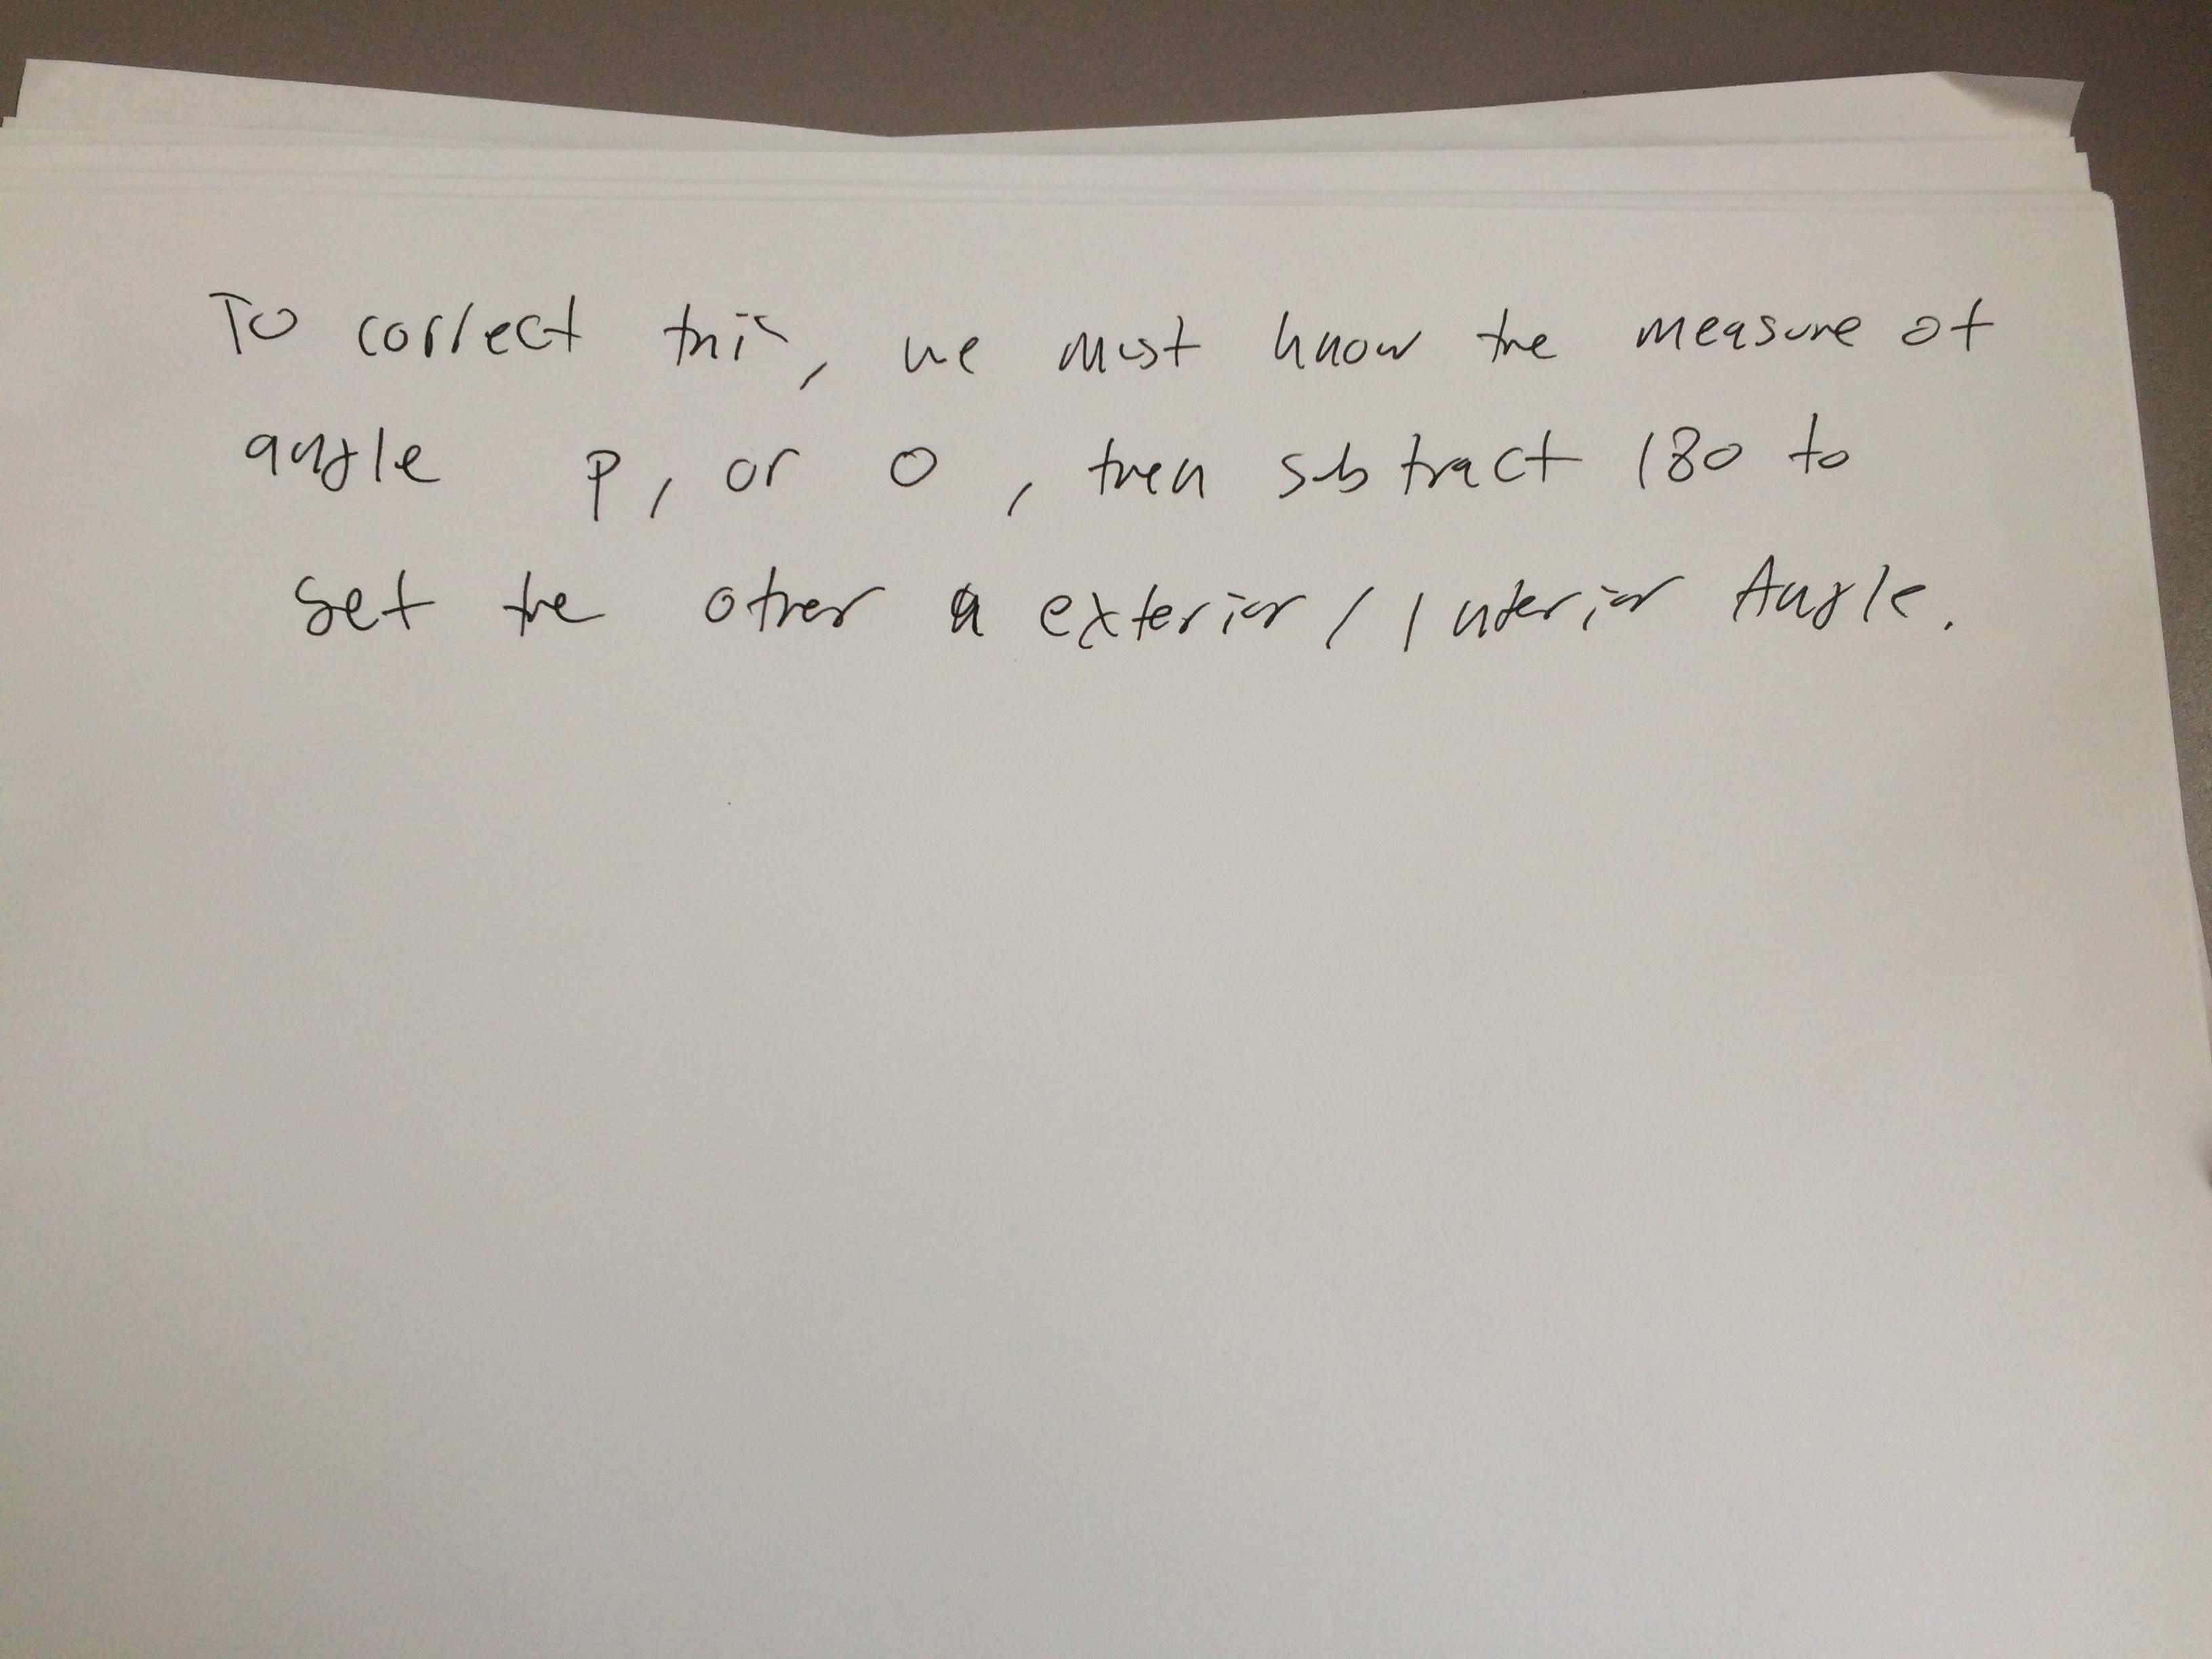 To correct this, we must know the measure of
angle P, or O, then subtract 180 to
get the other a exterior / Interior Angle.